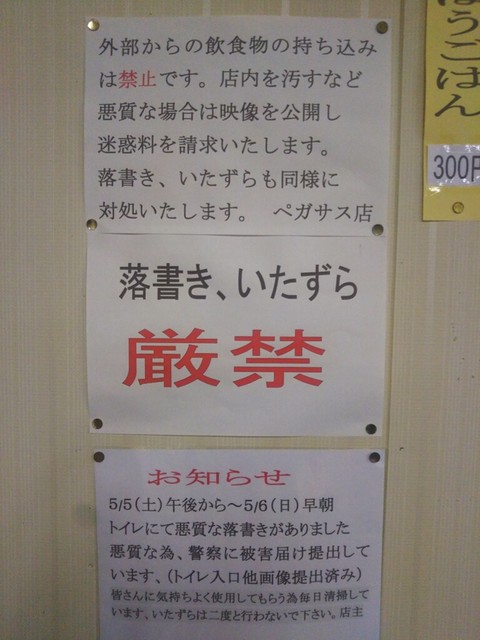 外部からの飲食物の持ち込み
は禁止です。店内を汚すなど
悪質な場合は映像を公開し
迷惑料を請求いたします。
落書き、いたずらも同様に
対処いたします。 ペガサス店
落書き、いたずら
厳禁
お知らせ
5/5(土)午後から～5/6(日)早朝
トイレにて悪質な落書きがありました
悪質な為、警察に被害届け提出して
います、(トイレ入口他画像提出済み)
皆さんに気持ちよく使用してもらう為毎日清掃して
います、いたずらは二度と行わないで下さい。店主
うごはん
300円